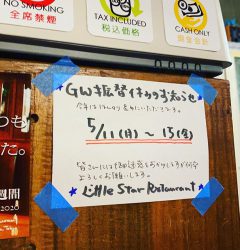 NO SMOKING
全席禁煙
TAX INCLUDED
税込価格
CASH ONLY
現金会計
GW振替休みのお知らせ
今年は少し長めにいただいております。
5/11(月)～15(金)
皆さんにはご迷惑をおかけしますが何卒
よろしくお願いします。
Little Star Restaurant
つも
た。
週間
2020